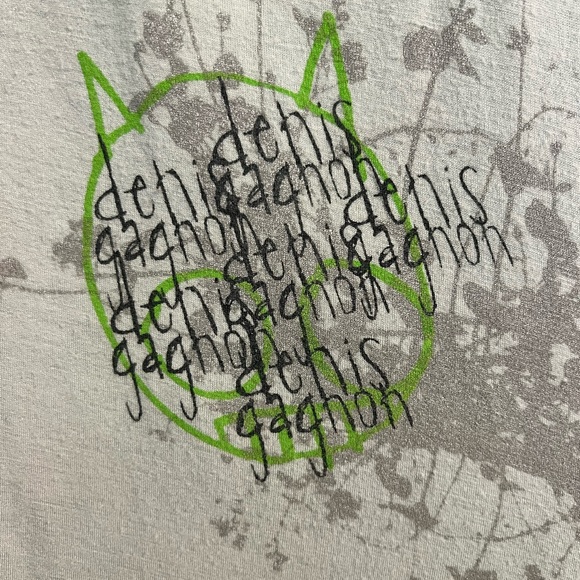 denis
gagnon
denis
gagnon
denis
gagnon
denis
gagnon
denis
gagnon
denis
gagnon